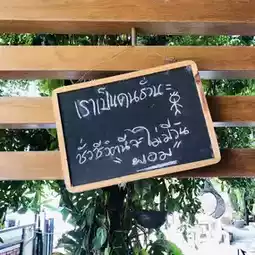 เราเป็นคนอ้วน
ชั่วชีวิตนี้จะไม่มีวัน
"ผอม"